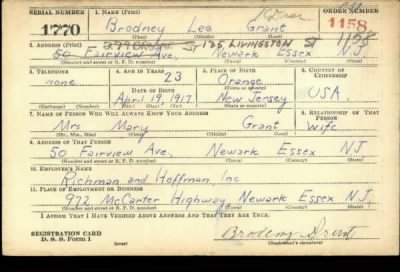 SERIAL NUMBER 1. NAME (Print) ORDER NUMBER
1770 Brodney Lee Grant 1158
(First) (Middle) (Last)
2. ADDRESS (Print) 135 LIVINGSTON ST 1158
50 Fairview Ave, Newark Essex N.J.
(Number and street or R. F. D. number) (Town) (County) (State)
3. TELEPHONE 4. AGE IN YEARS 5. PLACE OF BIRTH 6. COUNTRY OF CITIZENSHIP
none 23 Orange
DATE OF BIRTH (Town or county)
April 19, 1917 New Jersey USA.
(Mo.) (Day) (Yr.) (State or country)
7. NAME OF PERSON WHO WILL ALWAYS KNOW YOUR ADDRESS 8. RELATIONSHIP OF THAT PERSON
Mrs Mary Grant wife
(Mr., Mrs., Miss) (First) (Middle) (Last)
9. ADDRESS OF THAT PERSON
50 Fairview Ave, Newark Essex N.J.
(Number and street or R. F. D. number) (Town) (County) (State)
10. EMPLOYER'S NAME
Richman and Hoffman, Inc
11. PLACE OF EMPLOYMENT OR BUSINESS
972 McCarter Highway, Newark Essex N.J.
(Number and street or R. F. D. number) (Town) (County) (State)
I AFFIRM THAT I HAVE VERIFIED ABOVE ANSWERS AND THAT THEY ARE TRUE.
REGISTRATION CARD
D. S. S. Form 1 (over) (Registrant's signature)